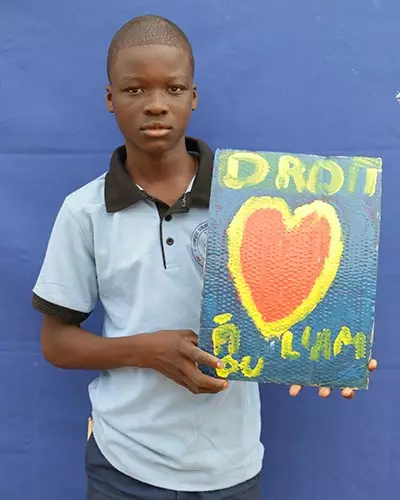 DROIT
À L'AM
OU